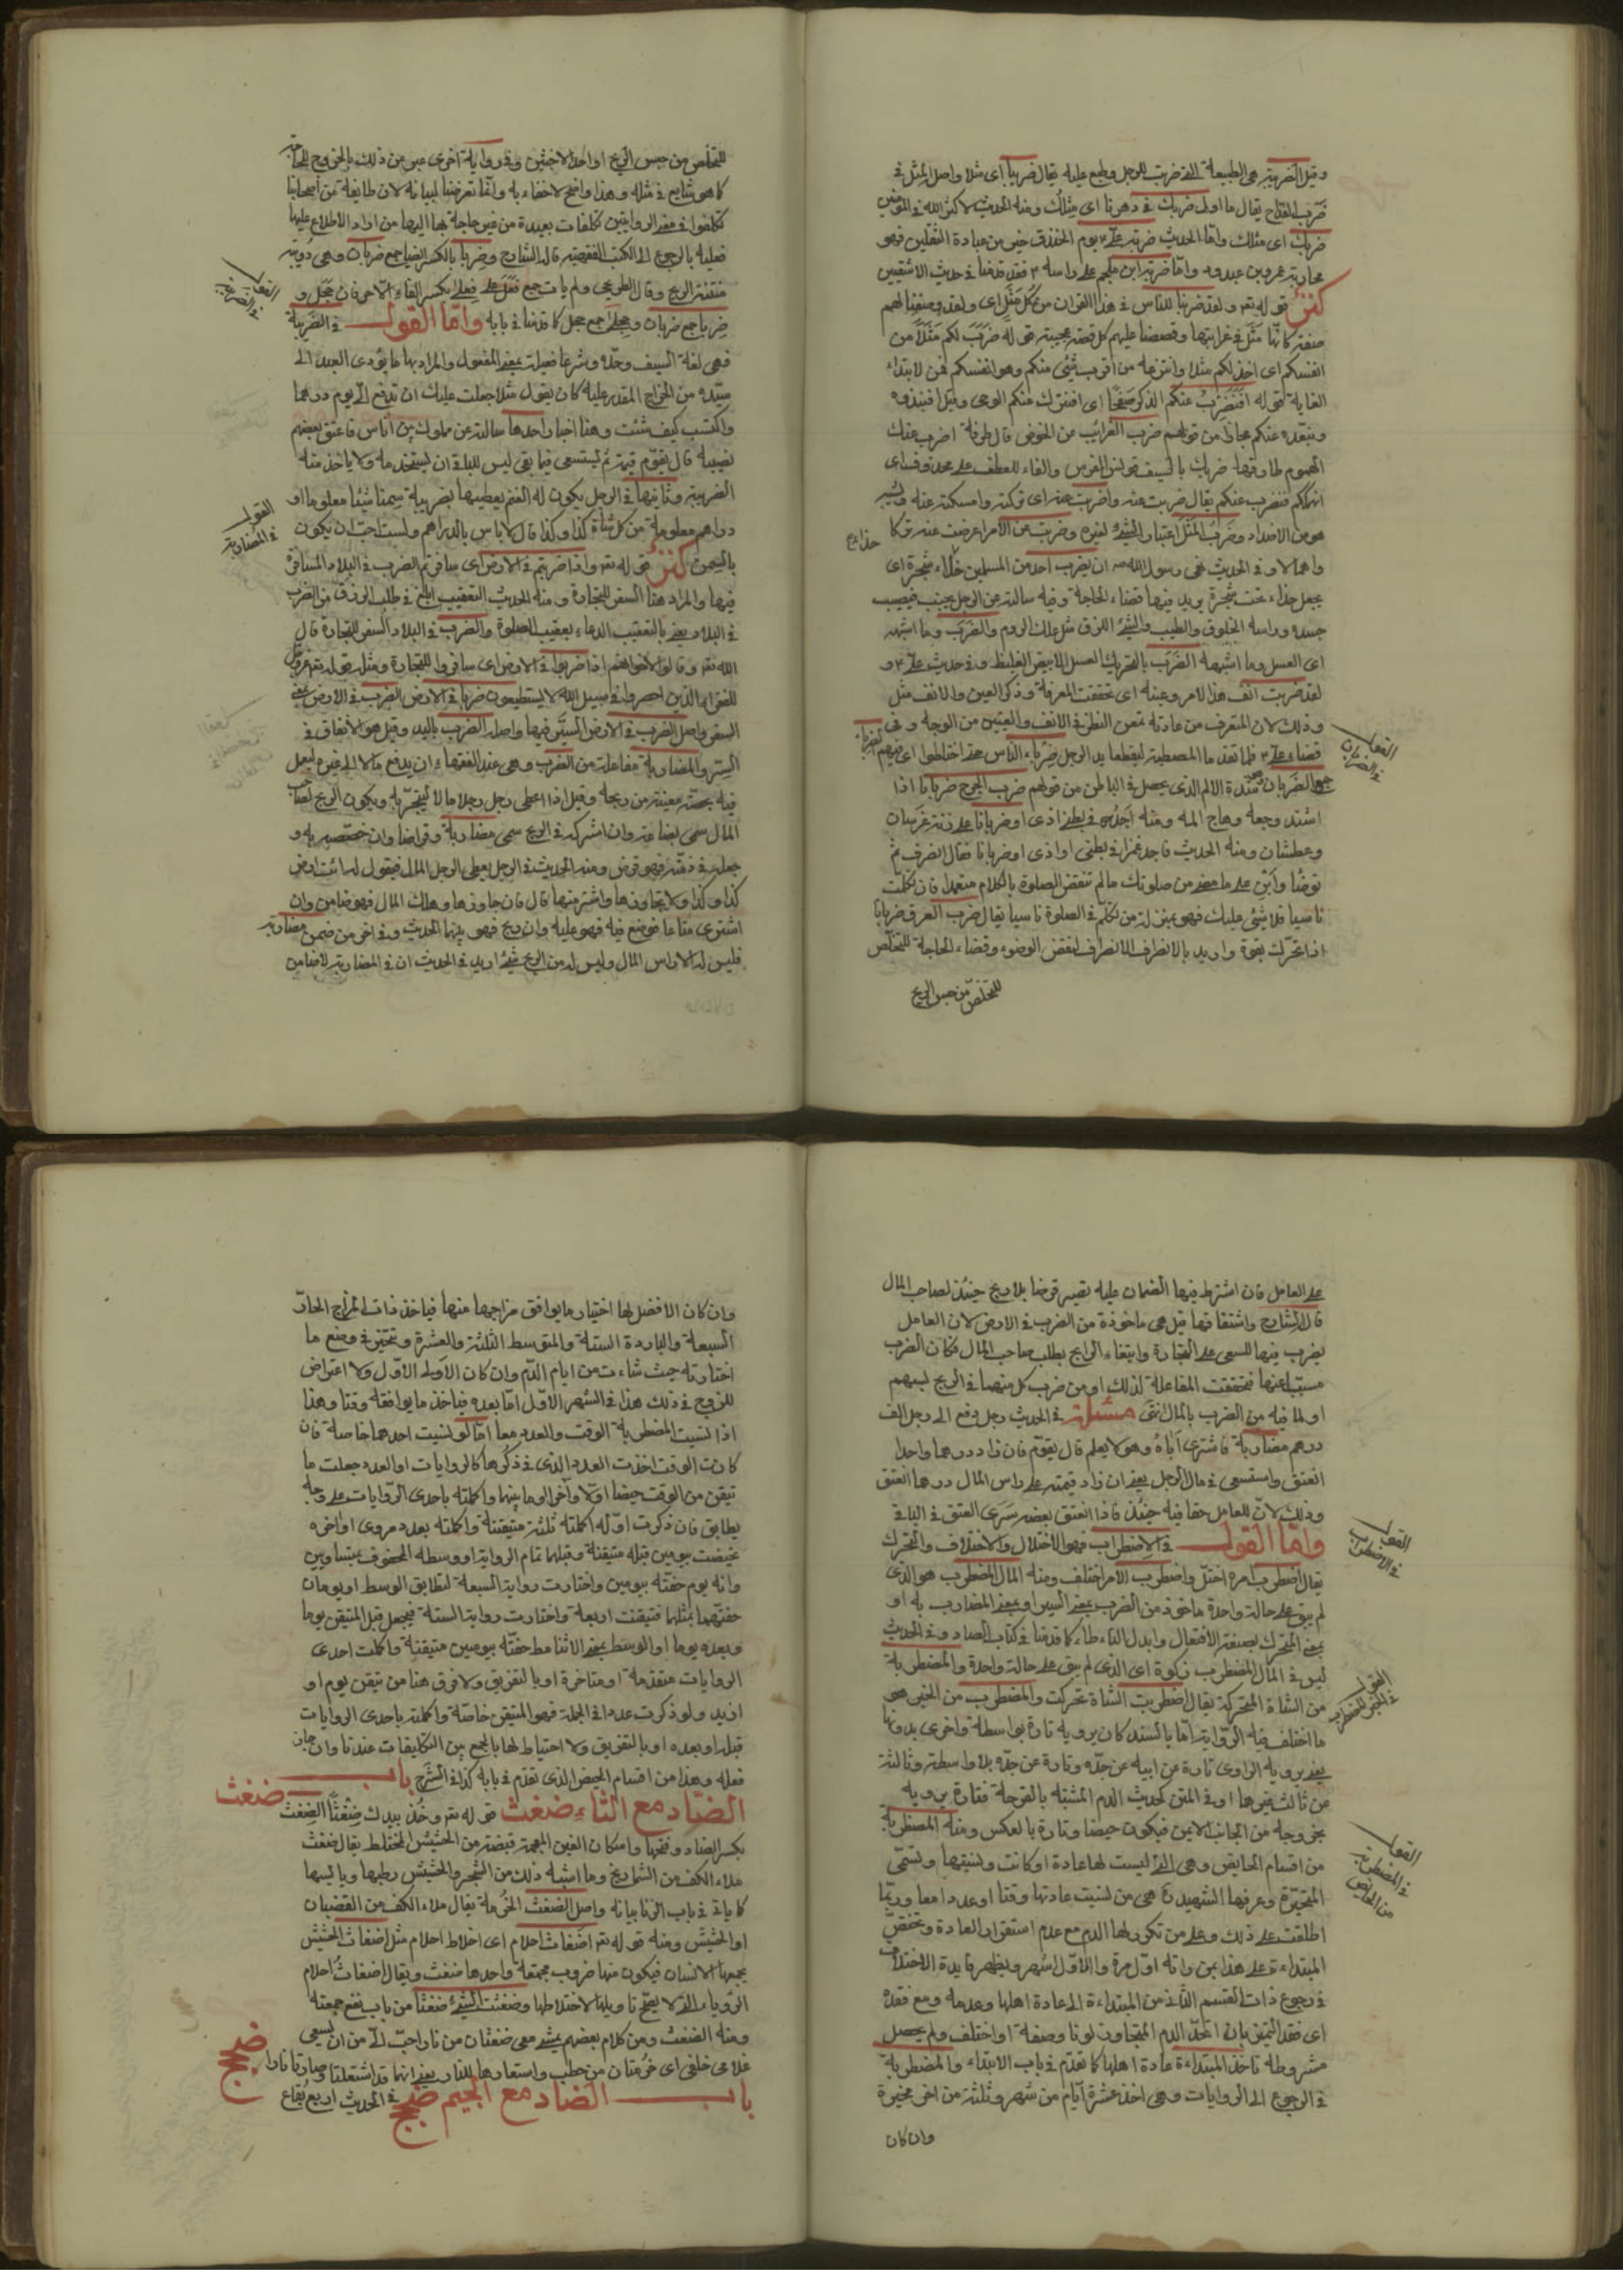 وقيل الضريبة هي الطبيعة التي ضربت للرجل وطبع عليه يقال ضريباً اى مثلا واصل المثل في
ضرب القداح يقال ما اولى ضربك في دهرنا اى مثلك ومنه الحديث لا كثر الله في المؤمنين
ضربك اى مثلك واما الحديث ضربة علي يوم الخندق خير من عبادة الثقلين فهو
محاربته عمرو بن عبدوه واما ضربة ابن ملجم على راسه فقد قدمنا في حديث الاشقيين
كنز قوله تعه ولقد ضربنا للناس في هذا القران من كل مثل اى ولقد وصفنا لهم
صفة كانها مثل في غرابتها وقصصنا عليهم كل قصة عجيبة قوله ضرب لكم مثلا من
انفسكم اى اخذ لكم مثلا وانتزعه من اقرب شئ منكم وهو انفسكم فمن لابتداء
الغاية قوله افنضرب عنكم الذكر صفحا اى افنترك عنكم الوحى وقيل افنذوده
ونبعده عنكم مجازا من قولهم ضرب الغرائب عن الحوض قال طرفة اضرب عنك
الهموم طارقها ضربك بالسيف قونس الفرس والفاء للعطف على محذوف اى
انهملكم فنضرب عنكم يقال ضربت عنه واضربت عنه اى تركته وامسكت عنه
هو من الاضداد وضرب المثل اعتبار الشئ لغيره وضرب عن الامر اعرض عنه تركا
واهمالا وفي الحديث نهى رسول الله ان يضرب احد من المسلمين خلاء تحت شجرة اى
يجعل خلاء تحت شجرة يريد فيها قضاء الحاجة وفيه سالته عن الرجل يجنب فيصيب
جسده وراسه الخلوق والطيب والشئ اللزق مثل علك الروم والضرب وما اشبهه
اى العسل وما اشبهه الضرب بالتحريك العسل الابيض الغليظ وفي حديث علي و
لقد ضربت انف هذا الامر وعينه اى تحققت المعرفة وذكر العين والانف مثل
وذلك لان المتعرف من عادته تمعن النظر في الانف والعينين من الوجه وفي
القول في الضربان
جمع الضربان شدة الالم الذى يحصل في الباطن من قولهم ضرب الجرح ضربانا اذا
اشتد وجعه وهاج المه ومنه اجد في بطنى اذى اوضربانا على زنة غربان
وعطشان ومنه الحديث فاجد غمزا في بطنى او اذى اوضربانا فقال انصرف ثم
توضا وابن على ما مضى من صلوتك ما لم تنقض الصلوة بالكلام متعمدا فان تكلمت
ناسيا فلا شئ عليك فهو بمنزلة من تكلم في الصلوة ناسيا يقال ضرب العرق ضربانا
اذا تحرك بقوة واريد بالانصراف الانصراف لنقض الوضوء وقضاء الحاجة للتخلص
للتخلص من حبس الريح
للتخلص من حبس الريح او احد الاخبثين وفي رواية اخرى عبر عن ذلك بالخروج للحاجة
كما هو شايع في مثله وهذا واضح لا خفاء به وانما تعرضنا لبيانه لان طايفة من اصحابنا
تكلفوا في معنى الروايتين تكلفات بعيدة من غير حاجة بهما اليها من اراد الاطلاع عليها
فعليه بالرجوع الى الكتب الفقهية قال الشارح وضربا بالكسر ايضا جمع ضربان وهى دويبة
منتنة الريح وقال الطريحى ولم يات جمع فعل على فعلى بكسر الفاء الا حرفان حجل و
ضربا جمع ضربان وحجلى جمع حجل كما قدمنا في بابه واما القول في الضريبة
القول في الضريبة
فهى لغة السيف وحده وشرعا فعيلة بمعنى المفعول والمراد بها ما يؤدى العبد الى
سيده من الخراج المقدر عليه كان يقول مثلا جعلت عليك ان تدفع الى يوم درهما
واكتسب كيف شئت وهنا اخبار احدها سالته عن مملوك بين اناس فاعتق بعضهم
نصيبه قال يقوم قيمة ثم يستسعى فيما بقى ليس للباقى ان يستخدمه ولا ياخذ منه
الضريبة وثانيها في الرجل يكون له الغنم يعطيها بضريبة سمنا شيئا معلوما او
دراهم معلومة من كل شاة كذا وكذا قال لا باس بالدراهم ولست احب ان يكون
القول في المضاربة
بالسمن كنز قوله تعه واذا ضربتم في الارض اى سافرتم الضرب في البلاد المسافرة
فيها والمراد هنا السفر للتجارة ومنه الحديث التعقيب ابلغ في طلب الرزق من الضرب
في البلاد يعنى بالتعقيب الدعاء بعقيب الصلوة والضرب في البلاد السفر للتجارة قال
الله تعه وقالوا لاخوانهم اذا ضربوا في الارض اى سافروا للتجارة ومثله قوله تعه
للفقراء الذين احصروا في سبيل الله لا يستطيعون ضربا في الارض الضرب في الارض يعنى
السفر واصل الضرب في الارض السير فيها واصله الضرب باليد وقيل هو الانفاق في
السير والمضاربة مفاعلة من الضرب وهى عند الفقهاء ان يدفع مالا الى غيره ليعمل
فيه بحصة معينة من ربحه وقيل اذا اعطى رجل رجلا مالا ليتجر به ويكون الربح لصاحب
المال سمى بضاعة وان اشركه في الربح سمى مضاربة وقراضا وان خصصه به و
جعله في ذمته فهو قرض ومنه الحديث في الرجل يعطى الرجل المال فيقول له ائت ارض
كذا وكذا ولا تجاوزها واشتر منها قال فان جاوزها وهلك المال فهو ضامن وان
اشترى متاعا فوضع فيه فهو عليه وان ربح فهو بينهما الحديث وفي اخر من ضمن مضاربة
فليس له الا راس المال وليس له من الربح شئ اريد في الحديث ان في المضاربة لا ضامن
على العامل فان اشترط فيها الضمان عليه تصير قرضا بلا ربح حينئذ لصاحب المال
قال الشارح واشتقاقها قيل هى ماخوذة من الضرب في الارض لان العامل
يضرب فيها للسعى على التجارة وابتغاء الرابح بطلب صاحب المال فكان الضرب
مسببا عنهما فتحققت المفاعلة لذلك او من ضرب كل منهما في الربح لسهم
او لما فيه من الضرب بالمال انتهى مسئلة في الحديث رجل دفع الى رجل الف
درهم مضاربة فاشترى اباه وهو لا يعلم قال يقوم فان زاد درهما واحدا
انعتق واستسعى في مال الرجل يعنى ان زاد قيمته على راس المال درهما انعتق
وذلك لان للعامل حقا فيه حينئذ فاذا انعتق بعضه سرى العتق في الباقى
واما القول في الاضطراب فهو الاختلال والاختلاف والتحرك
القول في الاضطراب
يقال اضطرب امره اختل واضطرب الامر اختلف ومنه المال المضطرب هو الذى
لم يبق على حالة واحدة ماخوذ من الضرب بمعنى السير او بمعنى المضارب به او
بمعنى المتحرك بصيغة الافتعال وابدل التاء طاء كما قدمنا في كتاب الصاد وفي الحديث
ليس في المال المضطرب زكوة اى الذى لم يبق على حالة واحدة والمضطربة
من الشاة المتحركة يقال اضطربت الشاة تحركت والمضطرب من الخبر هو
القول في الخبر المضطرب
ما اختلف فيه الرواية اما بالسند كان يرويه تارة بواسطة واخرى بدونها
يعنى يرويه الراوى تارة عن ابيه عن جده وتارة عن جده بلا واسطة وثالثة
عن ثالث غيرهما او في المتن كحديث الدم المشتبه بالقرحة فتارة يرويه
بخروجه من الجانب الايمن فيكون حيضا وتارة بالعكس ومنه المضطربة
القول في المضطربة من الحائض
من اقسام الحايض وهى التى ليست لها عادة او كانت ونسيتها وتسمى
المتحيرة وعرفها الشهيد بهى من نسيت عادتها وقتا او عددا معا وربما
اطلقت على ذلك وعلى من تكرر لها الدم مع عدم استقرار العادة وتختص
المبتداءة على هذا بمن راته اول مرة والاول اشهر ويظهر فايدة الاختلاف
في رجوع ذات القسم الثانى من المبتداءة الى عادة اهلها وعدمه ومع فقده
اى فقد التميز بان اتحد الدم المتجاوز لونا وصفة او اختلف ولم يحصل
مشروطه تاخذ المبتداءة عادة اهلها كما تقدم في باب الابتداء والمضطربة
في الرجوع الى الروايات وهى اخذ عشرة ايام من شهر وثلثة من اخر مخيرة
وان كان
وان كان الافضل لها اختيار ما يوافق مزاجها منها فياخذ ذات المزاج الحار
السبعة والباردة الستة والمتوسط الثلثة والعشرة وتتخير في وضع ما
اختارته حيث شاءت من ايام الدم وان كان الاولى الاول ولا اعتراض
للزوج في ذلك هذا في الشهر الاول اما بعده فياخذ ما يوافقه وقتا وهذا
اذا نسيت المضطربة الوقت والعدد معا اما لو نسيت احدهما خاصة فان
كانت الوقت اخذت العدد الذى في ذكرها كالروايات او العدد جعلت ما
تيقن من الوقت حيضا اولا واخرا او ما بينهما واكملته باحدى الروايات على وجه
يطابق فان ذكرت اوله اكملته ثلثة متيقنة واكملته بعدد مروى او اخره
تحيضت بيومين قبله متيقنة وقبلهما تمام الرواية او وسطه المحفوف بمتساويين
وانه يوم حفته بيومين واختارت رواية السبعة لتطابق الوسط او يومان
حفتهما بمثلهما فتيقنت اربعة واختارت رواية الستة فيجعل قبل المتيقن يوما
وبعده يوما او الوسط بمعنى الاثناء مط حفته بيومين متيقنة واكملت احدى
الروايات متقدمة او متاخرة او بالتفريق ولا فرق هنا من تيقن يوم او
ازيد ولو ذكرت عددا في الجملة فهو المتيقن خاصة واكملته باحدى الروايات
قبله او بعده او بالتفريق ولا احتياط لها بالجمع بين التكليفات عندنا وان جاز
فعله وهذا من اقسام الحيض الذى تقدم في بابه كذا في الشرح باب
الضاد مع الثاء ضغث قوله تعه وخذ بيدك ضغثا الضغث
ضغث
بكسر الضاد وفتحها واسكان الغين المعجمة قبضة من الحشيش المختلط يقال ضغث
ملاء الكف من الشماريخ وما اشبه ذلك من الشجر والحشيش رطبها ويابسها
كما ياتى في باب الزنا بيانه واصل الضغث الحزمة يقال ملاء الكف من القضبان
او الحشيش ومنه قوله تعه اضغاث احلام اى اخلاط احلام مثل اضغاث الحشيش
يجمعها الانسان فيكون منها ضروب مجتمعة واحدها ضغث ويقال اضغاث احلام
الرؤيا التى لا يصح تاويلها لاختلاطها وضغثت الشئ ضغثا من باب نفع جمعته
ومنه الضغث ومن كلام بعضهم يمشى معى ضغثان من نار احب الى من ان يسعى
غلامى خلفى اى حزمتان من حطب واستعارها للنار يعنى انهما قد اشتعلتا وصارتا نارا
باب الضاد مع الجيم ضجج في الحديث اربع بقاع
ضجج